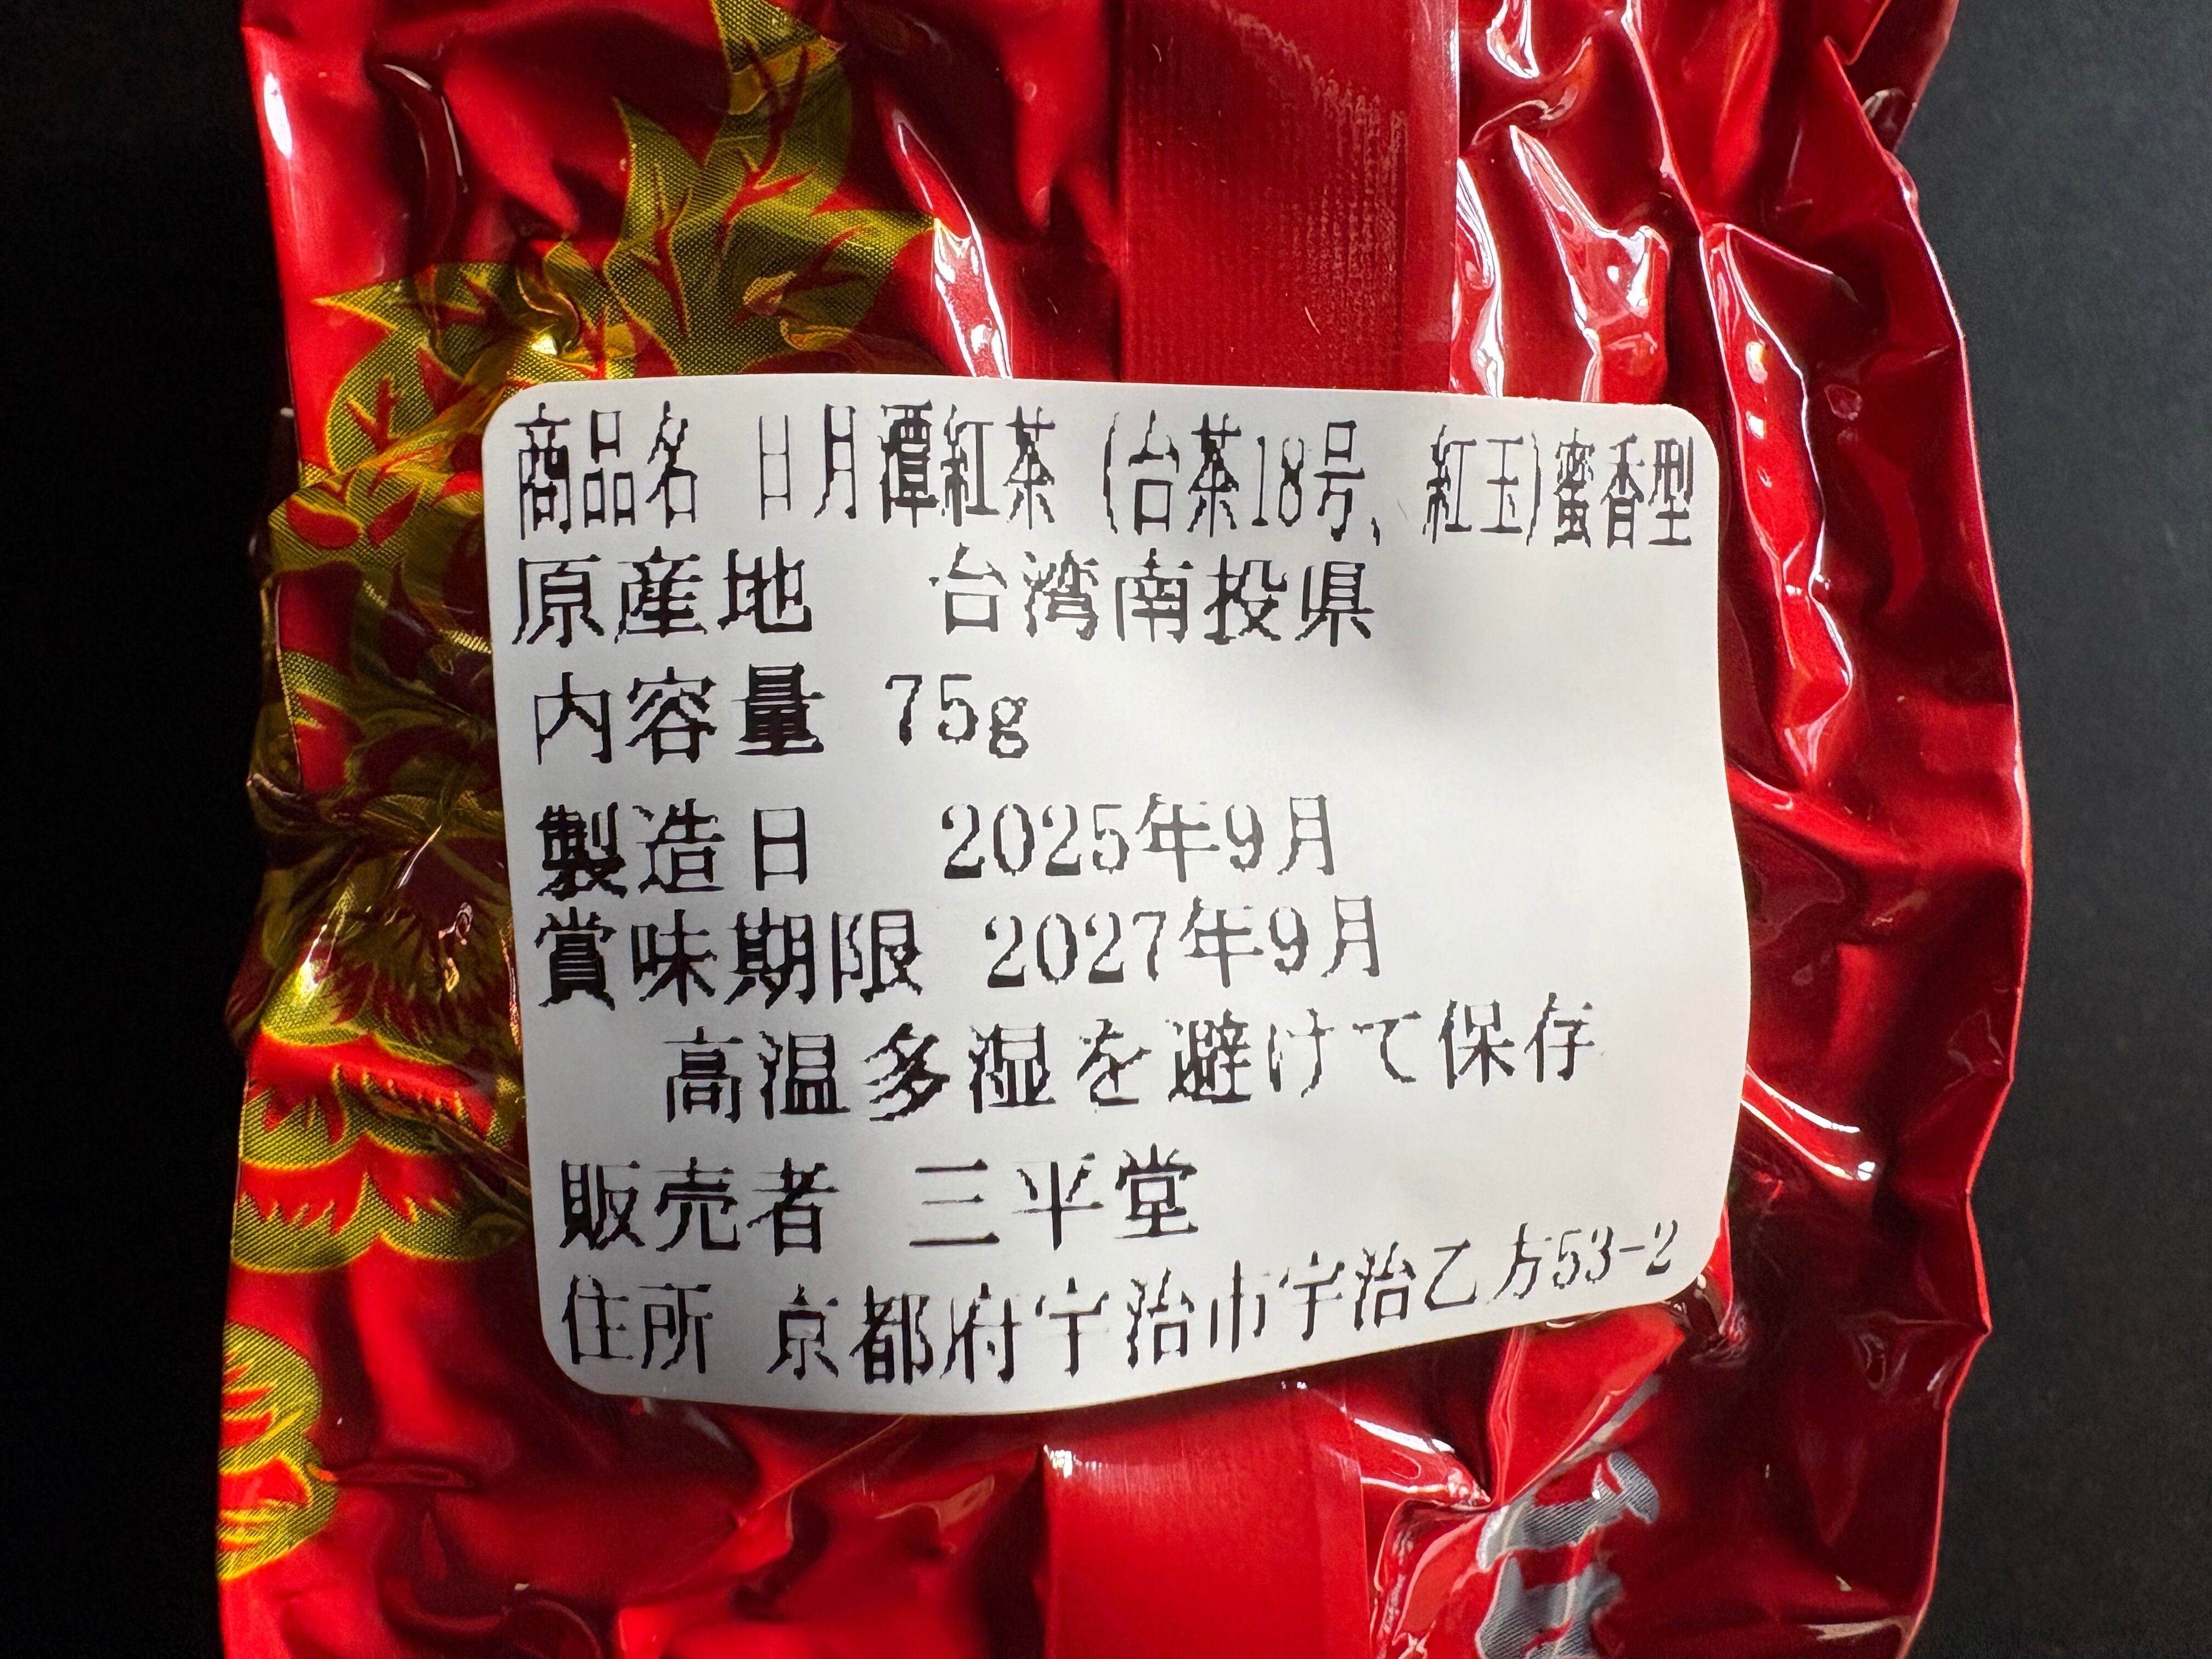 商品名 日月潭紅茶 (台茶18号、紅玉)蜜香型
原産地 台湾南投県
内容量 75g
製造日 2025年9月
賞味期限 2027年9月
高温多湿を避けて保存
販売者 三平堂
住所 京都府宇治市宇治乙方53-2